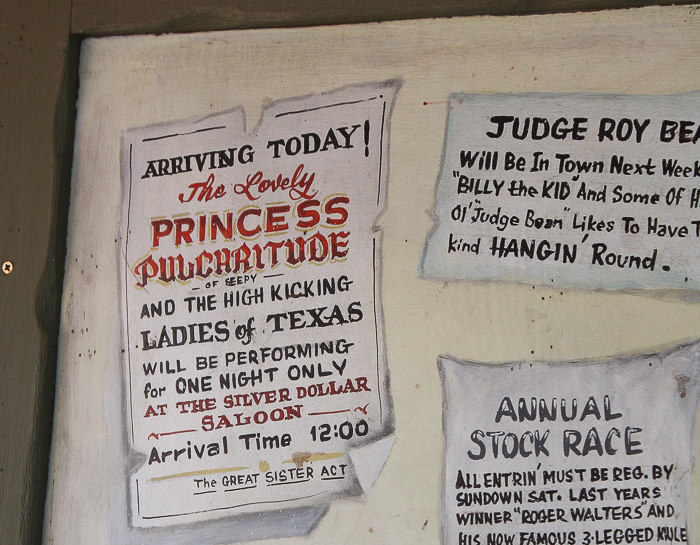 ARRIVING TODAY!
The Lovely
PRINCESS
PULCHRITUDE
OF SEEPY
AND THE HIGH KICKING
LADIES of TEXAS
WILL BE PERFORMING
for ONE NIGHT ONLY
AT THE SILVER DOLLAR
SALOON
Arrival Time 12:00
The GREAT SISTER ACT
JUDGE ROY BEA
Will Be In Town Next Week
"BILLY the KID" And Some Of H
Ol' "Judge Bean" Likes To Have T
kind HANGIN' Round.
ANNUAL
STOCK RACE
ALL ENTRIN' MUST BE REG. BY
SUNDOWN SAT. LAST YEARS
WINNER "ROGER WALTERS" AND
HIS NOW FAMOUS 3-LEGGED MULE